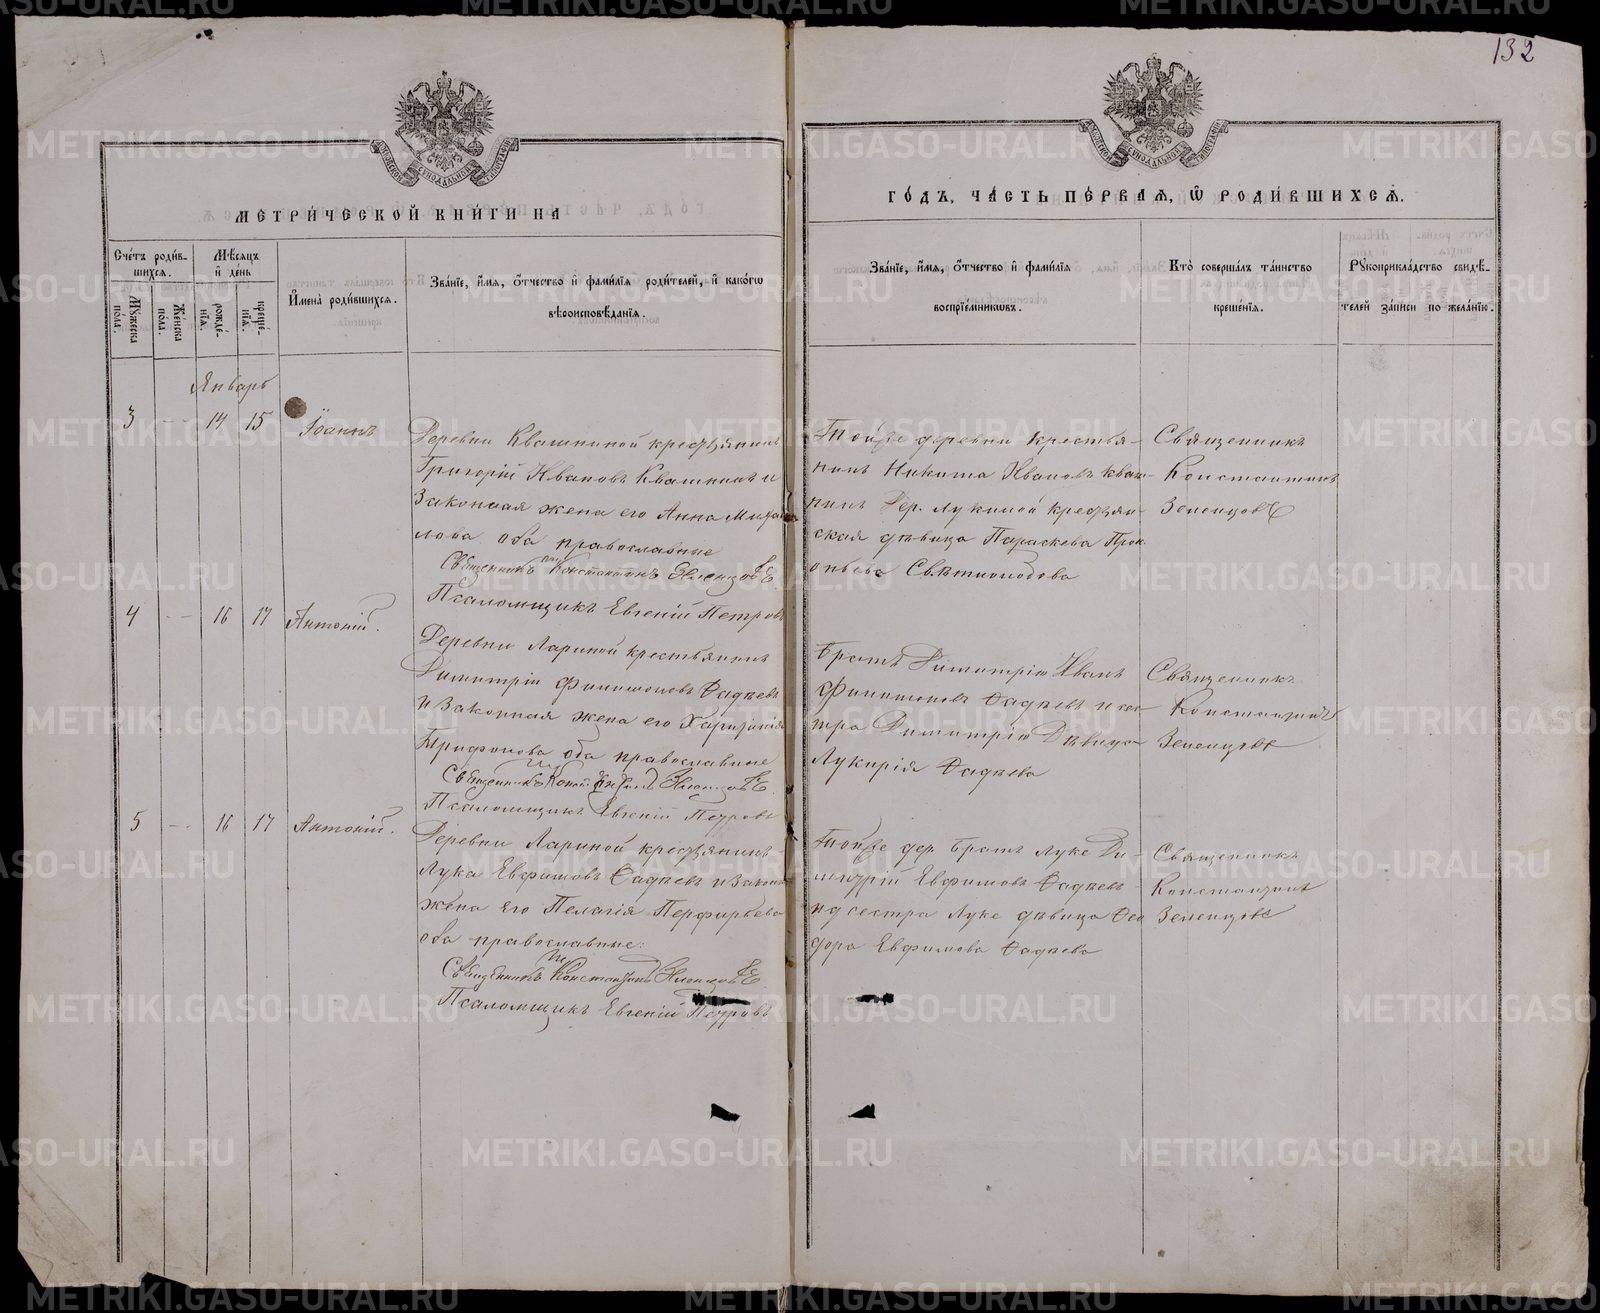 132
МЕТРИ́ЧЕСКОЙ КНИ́ГИ НА
ГО́ДЪ, ЧА́СТЬ ПЕ́РВАѦ, Ѿ РОДИ́ВШИХСѦ.
Сче́тъ роди́в-
шихсѧ.
Мѣсѧцъ
и҆ де́нь
Мꙋ́жеска по́ла.
Же́нска по́ла.
рожде́-
нїѧ.
креще́-
нїѧ.
И҆мена̀ роди́вшихсѧ.
Зва́нїе, и҆́мѧ, ѻ҆́тчество и҆ фами́лїѧ роди́телей, и҆ како́гѡ
вѣроисповѣ́данїѧ.
Зва́нїе, и҆́мѧ, ѻ҆́тчество и҆ фами́лїѧ
воспрїе́мникѡвъ.
Кто̀ соверша́лъ та́инство
креще́нїѧ.
Рꙋкоприкла́дство свидѣ́-
телей за́писи по жела́нїю.
Январь
3 — 14 15 Іоаннъ
Деревни Квашниной крестьянинъ
Григорій Ивановъ Квашнинъ и
законная жена его Анна Михай
лова оба православные
Священникъ Константинъ Зеленцовъ
Псаломщикъ Евгеній Петровъ
Тойже деревни крестья-
нинъ Никита Ивановъ Кваш-
нинъ дер. Лукиной крестьян-
ская дѣвица Параскева Прок
опьева
Священникъ
Константинъ
Зеленцовъ
4 — 16 17 Антоній.
Деревни Лариной крестьянинъ
Димитрій Филимоновъ Фадѣевъ
и законная жена его
Трифонова оба православные
Священникъ Константинъ Зеленцовъ
Псаломщикъ Евгеній Петровъ
Братъ Димитрію Иванъ
Филимоновъ Фадѣевъ и сес-
тра Димитрію дѣвица
Лукирія Фадѣева
Священникъ
Константинъ
Зеленцовъ
5 — 16 17 Антоній.
Деревни Лариной крестьянинъ
Лука Евфимовъ Фадѣевъ и законн
жена его Пелагія Перфирьева
оба православные:
Священникъ Константинъ Зеленцовъ
Псаломщикъ Евгеній Петровъ
Тойже дер. братъ Луке Ди-
митрій Евфимовъ Фадѣевъ
и сестра Луке дѣвица Фео
дора Евфимова Фадѣева
Священникъ
Константинъ
Зеленцовъ
METRIKI.GASO-URAL.RU